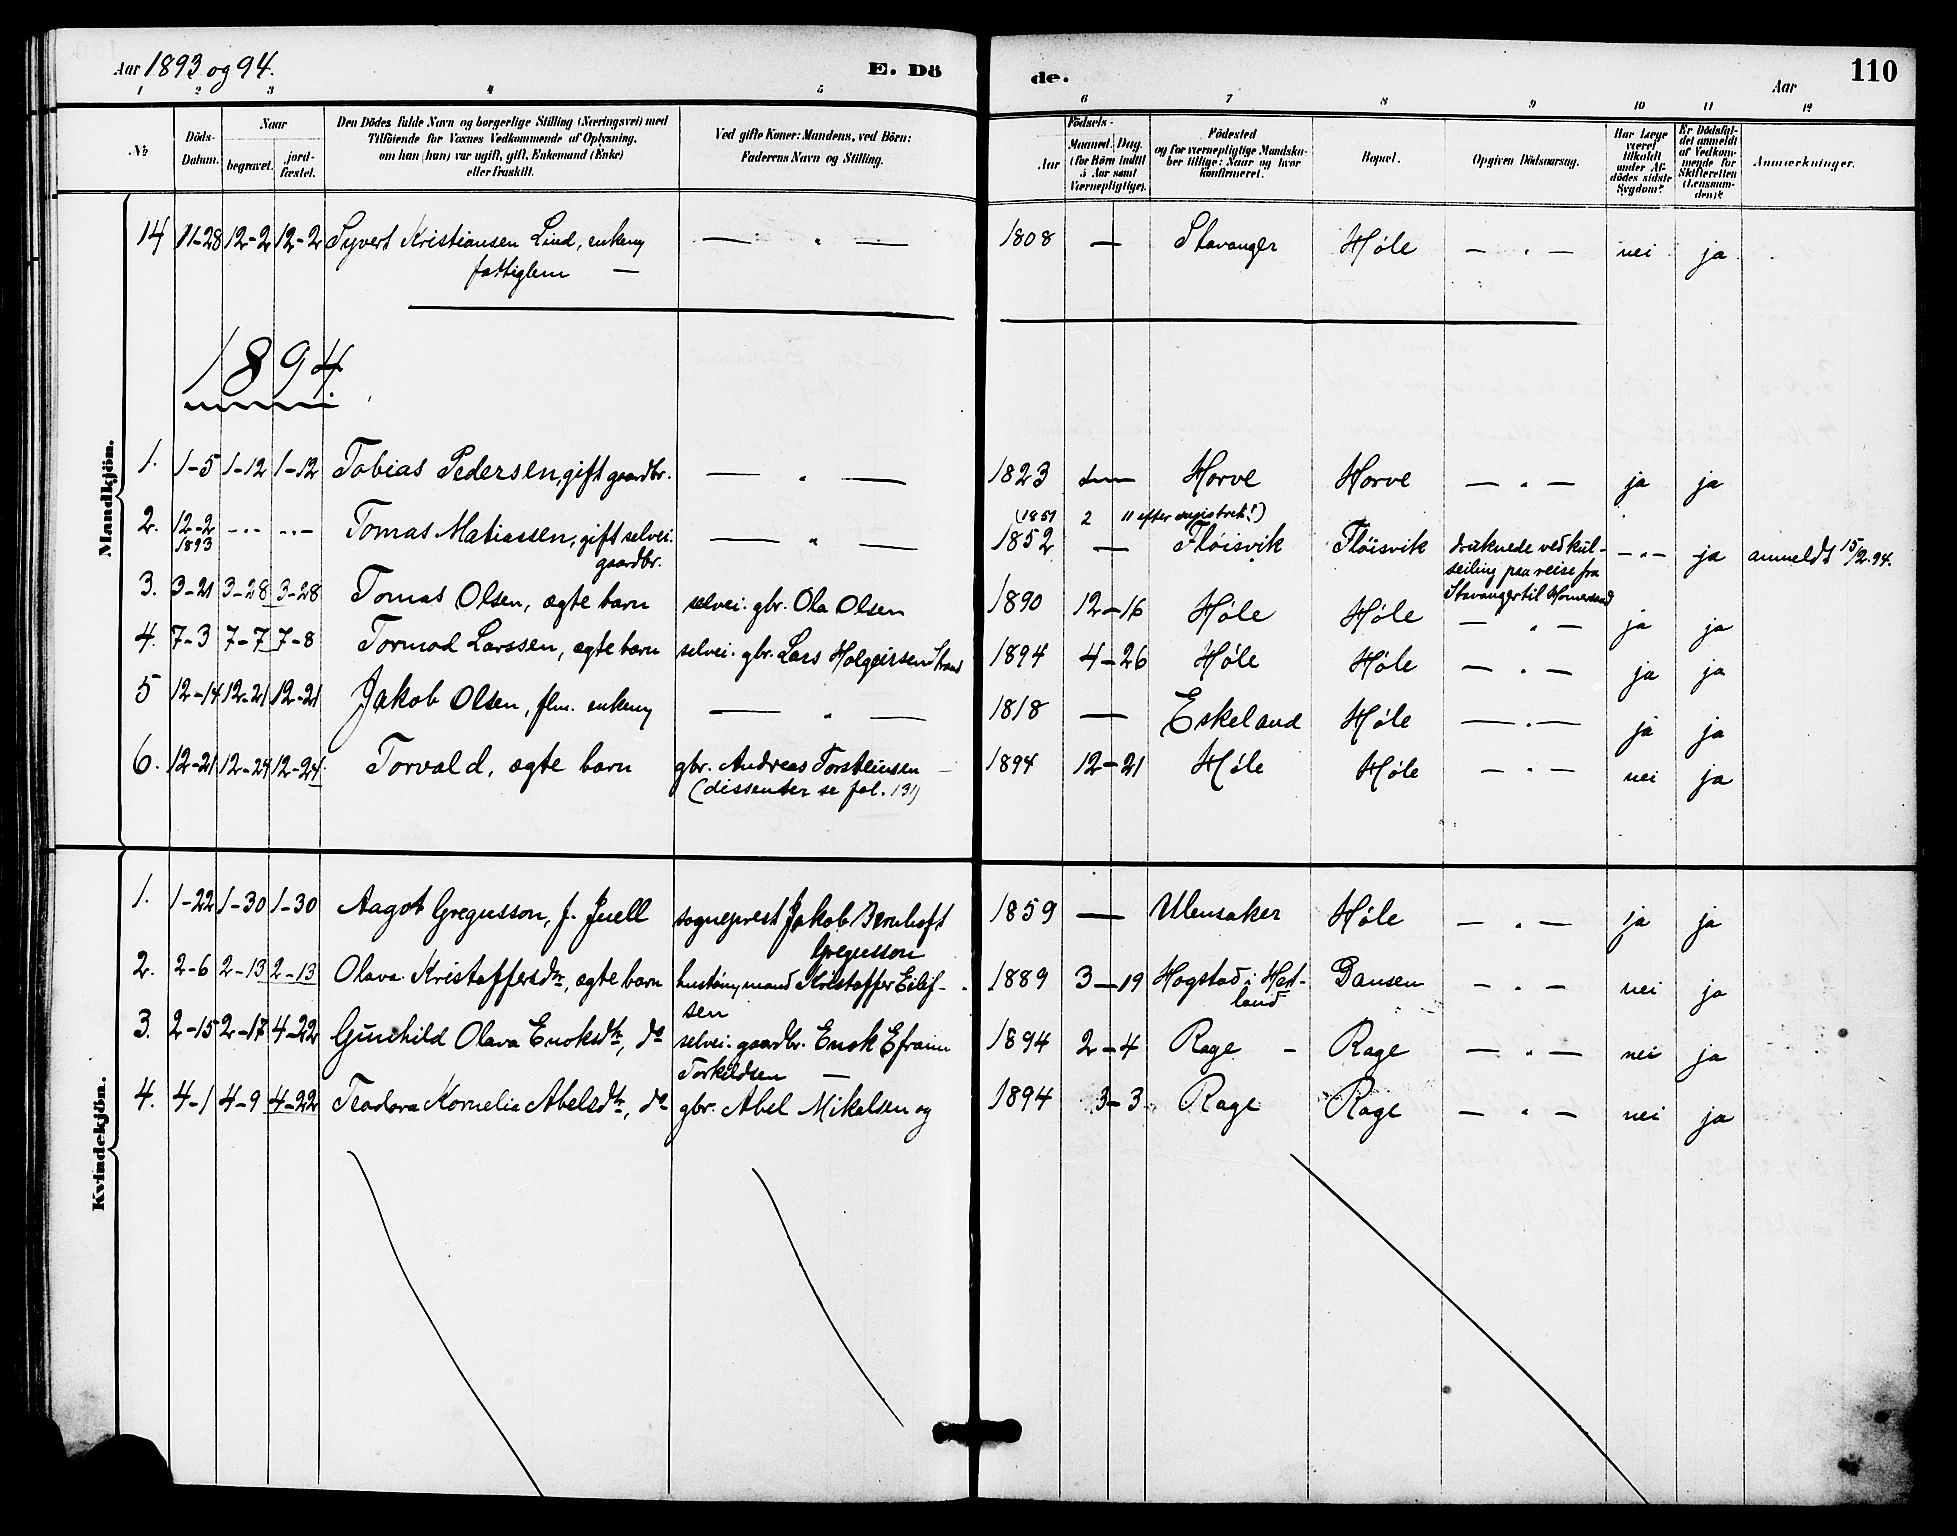 Aar 1893 og 94.
E. Dö
de.
Aar
110
1 2 3 4 5 6 7 8 9 10 11 12
No
Döds-
Datum.
Naar
begravet.
jord-
fæstet.
Den Dödes fulde Navn og borgerlige Stilling (Næringsvei) med
Tilföiende for Voxnes Vedkommende af Oplysning,
om han (hun) var ugift, gift, Enkemand (Enke)
eller fraskilt.
Ved gifte Koner: Mandens, ved Börn:
Faderens Navn og Stilling.
Födsels-
Aar
Maaned. Dag.
(for Börn indtil
5 Aar samt
Værnepligtige).
Födested
og for værnepligtige Mandska-
ber tillige: Naar og hvor
konfirmeret.
Bopæl.
Opgiven Dödsaarsag.
Har Læge
været
tilkaldt
under Af-
dödes sidste
Sygdom?
Er Dödsfal-
det anmeldt
af Vedkom-
mende for
Skifteretten
(Lensman-
den)?
Anmærkninger.
Mandkjön.
14 11-28 12-2 12-2 Syvert Kristiansen Lind, enkem — " — 1808 — Stavanger Høle — " — nei ja
fattiglem —
1894
1. 1-5 1-12 1-12 Tobias Pedersen, gift gaardbr. — " — 1823 Horve Horve — " — ja ja
(1851 2 11 efter registret!)
2. 12-2 -"- -"- Tomas Matiassen, gift selvei. — " — 1852 — Fløisvik Fløisvik druknede ved kul- -"- ja anmeldt 15/2.94.
1893
gaardbr.
seiling paa reise fra
Stavanger til Homersand
3. 3-21 3-28 3-28 Tomas Olsen, ægte barn selvei. gbr. Ola Olsen 1890 12-16 Høle Høle — " — ja ja
4. 7-3 7-7 7-8 Tormod Larssen, ægte barn selvei. gbr. Lars Holgeirsen 1894 4-26 Høle Høle — " — ja ja
5 12-14 12-21 12-21 Jakob Olsen, flm. enkem — " — 1818 — Eskeland Høle — " — ja ja
6. 12-21 12-24 12-24 Torvald, ægte barn gbr. Andreas Torsteinsen 1894 12-21 Høle Høle — " — nei ja
(dissenter se fol. 131)
Kvindekjön.
1. 1-22 1-30 1-30 Aagot Gregusson, f. Juell sogneprest Jakob Bernhoft 1859 — Ulensaker Høle — " — ja ja
Gregusson
2. 2-6 2-13 2-13 Olava Kristoffersdtr, ægte barn husmand Kristoffer Eilef- 1889 3-19 Hogstad i Het- Dansen — " — nei ja
sen
land
3. 2-15 2-17 4-22 Gunhild Olava Enoksdtr, do selvei. gaardbr. Enok Efraim 1894 2-4 Rage - Rage — " — nei ja
Torkildsen —
4. 4-1 4-9 4-22 Teodora Kornelia Abelsdtr, do gbr. Abel Mikalsen og 1894 3-3 Rage Rage — " — nei ja